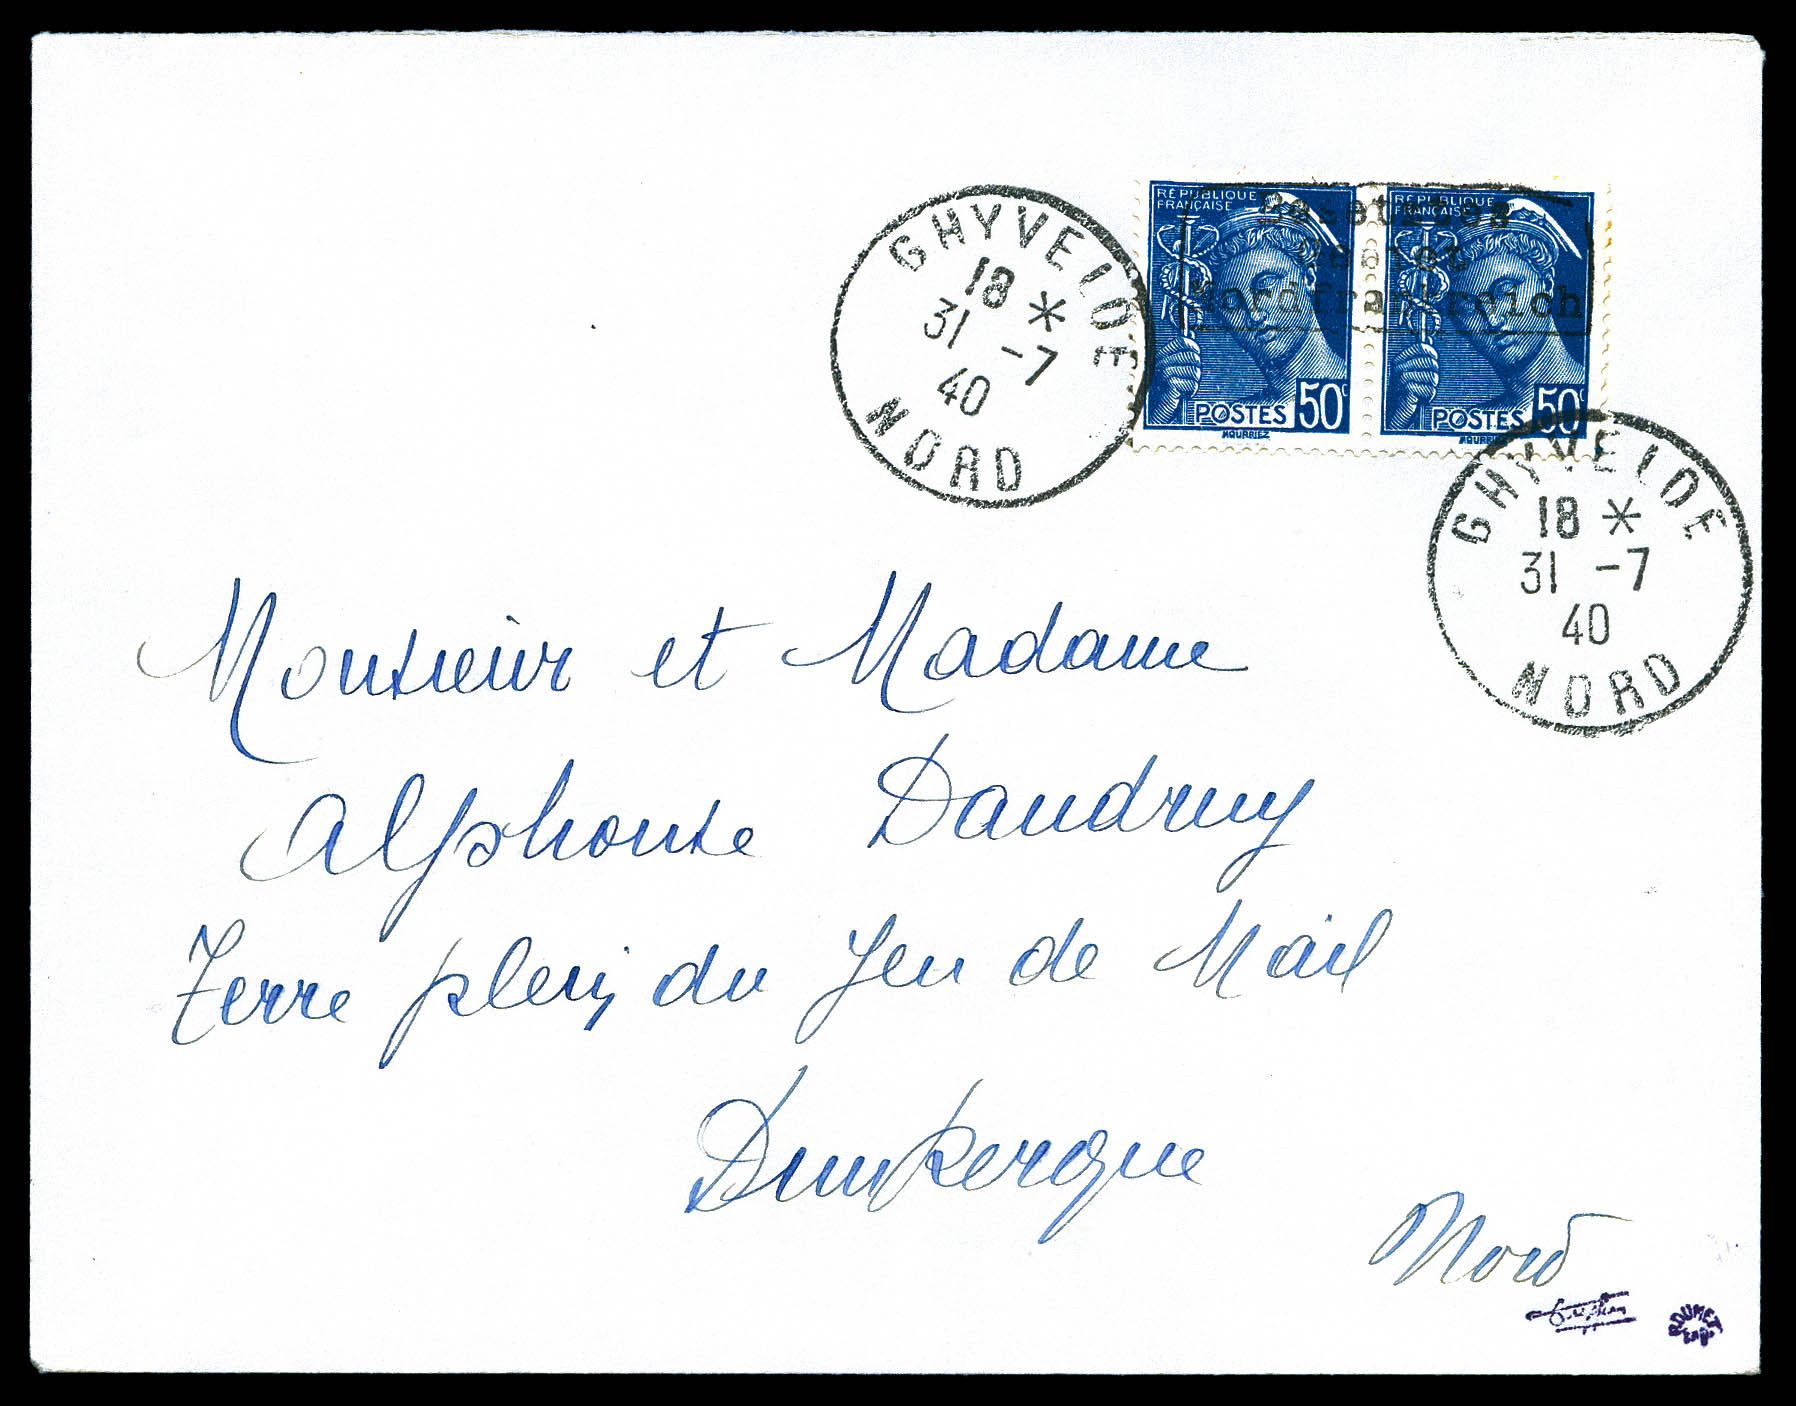 GHYVELDE
18 *
31 -7
40
NORD
RÉPUBLIQUE
FRANÇAISE
POSTES 50c
MOURRIEZ
RÉPUBLIQUE
FRANÇAISE
POSTES 50c
MOURRIEZ
Besetztes
Gebiet
Nordfrankreich
GHYVELDE
18 *
31 -7
40
NORD
Monsieur et Madame
Alphonse Daudruy
Terre plein du Jeu de Mail
Dunkerque
Nord
ROUMET
Exp.